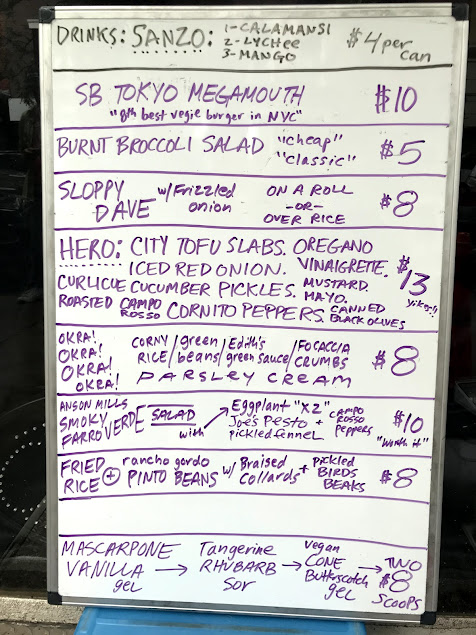 DRINKS: SANZO: 1-CALAMANSI $4 per can
2-LYCHee
3-MANGO
SB TOKYO MEGAMOUTH $10
"8th best vegie burger in NYC"
BURNT BROCCOLI SALAD "cheap" "classic" $5
SLOPPY DAVE w/Frizzled onion ON A ROLL -OR- OVER RICE $8
HERO: CITY TOFU SLABS. OREGANO VINAIGRETTE. $13
ICED RED ONION. MUSTARD. yikes!!
CURLICUE CUCUMBER PICKLES. MAYO.
ROASTED CAMPO ROSSO CORNITO PEPPERS. CANNED BLACK OLIVES
OKRA! OKRA! OKRA! OKRA! CORNY RICE/green beans/Edith's green sauce/FOCACCIA CRUMBS $8
PARSLEY CREAM
ANSON MILLS SMOKY FARRO VERDE SALAD with Eggplant "XZ" Joe's Pesto pickled fennel + CAMPO ROSSO Peppers $10 "worth it"
FRIED RICE + rancho gordo PINTO BEANS w/ Braised Collards + pickled BIRDS BEAKS $8
MASCARPONE VANILLA gel → Tangerine RHUBARB Sor → vegan CONE Butterscotch gel → TWO $8 SCOOPS